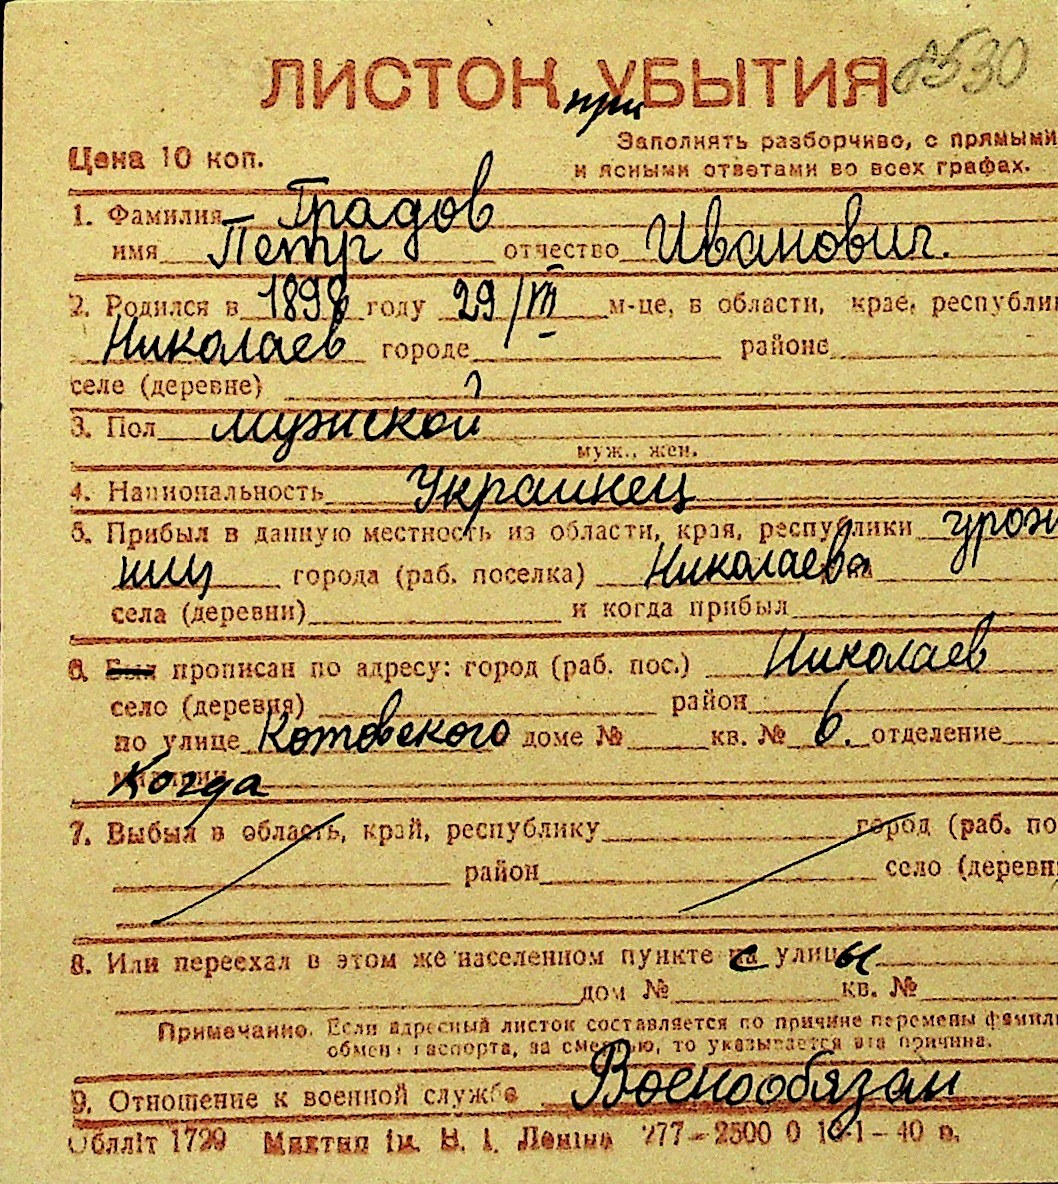 ЛИСТОК УБЫТИЯ 2530
при
Заполнять разборчиво, с прямыми
Цена 10 коп. и ясными ответами во всех графах.
1. Фамилия Градов
имя Петр отчество Иванович.
2. Родился в 1898 году 29/VII м-це, в области, крае, республи
Николаев городе районе
селе (деревне)
3. Пол мужской
муж., жен.
4. Национальность Украинец
5. Прибыл в данную местность из области, края, республики урож
города (раб. поселка) Николаева
села (деревни) и когда прибыл
6. Был прописан по адресу: город (раб. пос.) Николаев
село (деревня) район
по улице Котовского доме № кв. № 6. отделение
милиции Когда
7. Выбыл в область, край, республику город (раб. по
район село (деревн
8. Или переехал в этом же населенном пункте с улицы
дом № кв. №
Примечание. Если адресный листок составляется по причине перемены фамили
обмена паспорта, за смертью, то указывается эта причина.
9. Отношение к военной службе Военообязан
Облліт 1729 Миктип ім. В. І. Леніна 277—2500 0 1940 р.